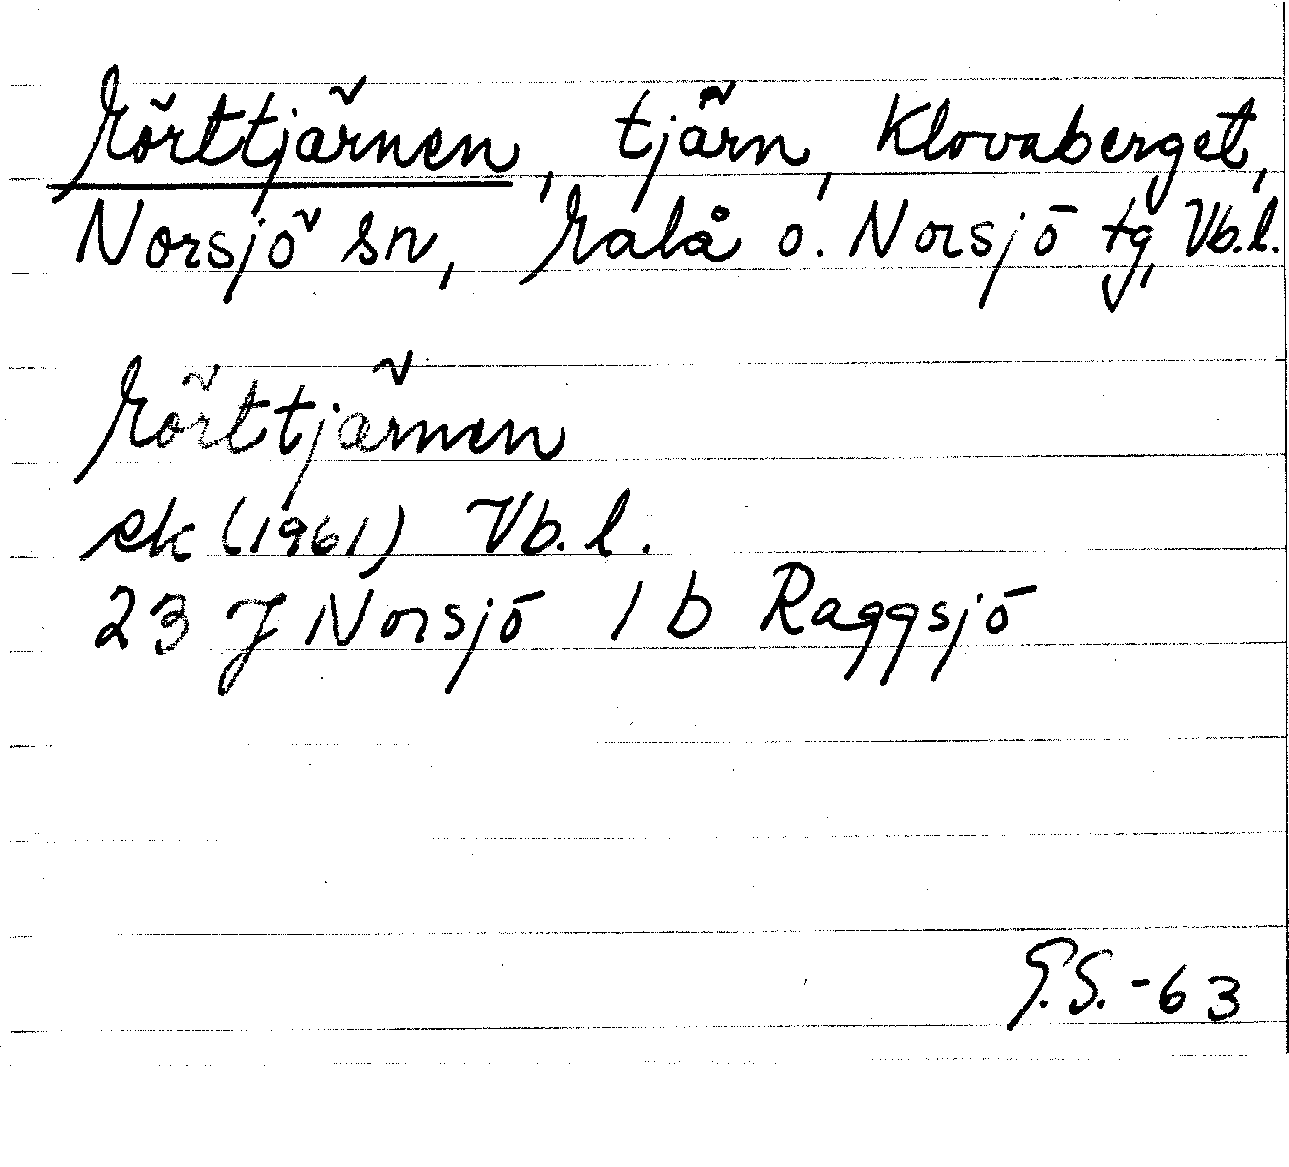 Mörttjärnen, tjärn, Klovaberget,
Norsjö sn, Malå o. Norsjö tg, Vb.l.
Mörttjärnen
ek (1961) Vb.l.
23 J Norsjö 1 b Raggsjö
G.S.-63